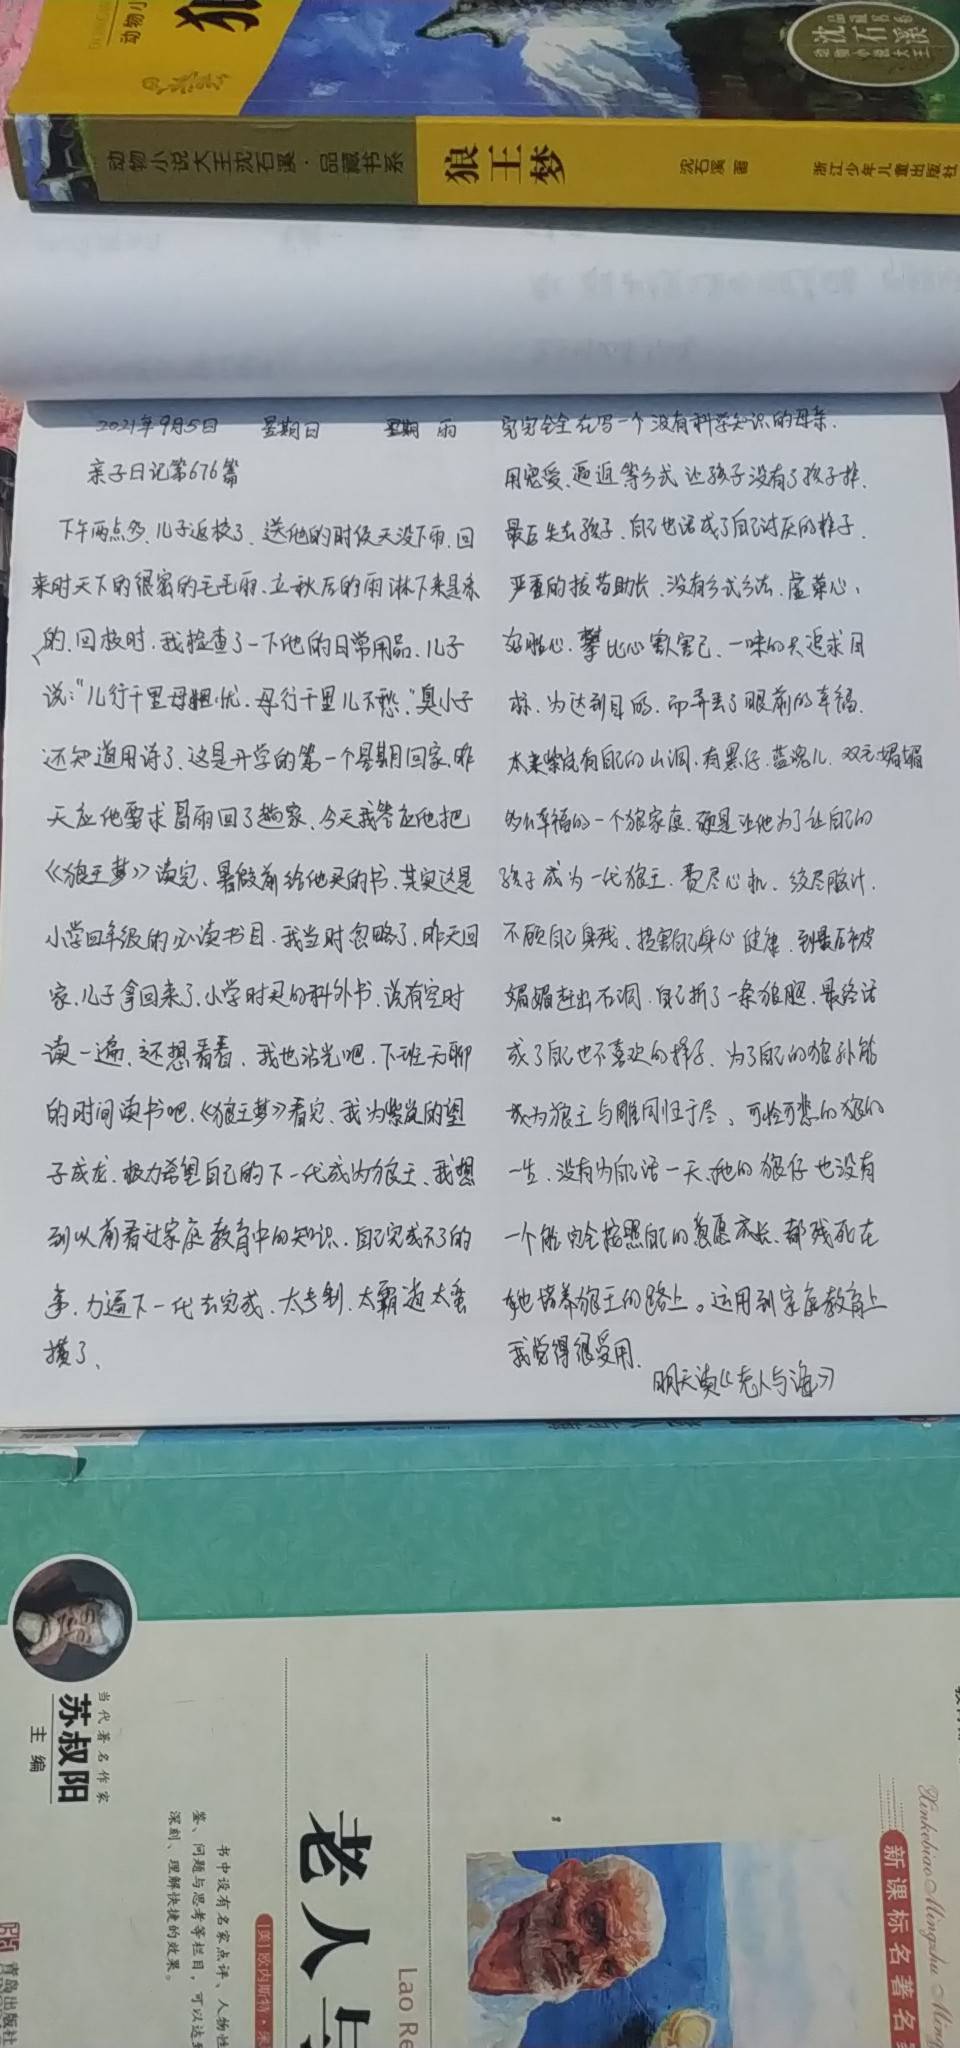 动物小
狼
沈石溪
动物小说大王
品藏书系
动物小说大王沈石溪·品藏书系
狼王梦
沈石溪 著
浙江少年儿童出版社
2021年9月5日 星期日 雨
亲子日记第676篇
下午两点多,儿子返校了,送他的时侯天没下雨,回
来时天下的很密的毛毛雨,立秋后的雨淋下来是凉
的,回校时,我检查了一下他的日常用品,儿子
说:"儿行千里母担忧,母行千里儿不愁",臭小子
还知道用诗了,这是开学的第一个星期回家,昨
天应他要求冒雨回了趟家,今天我答应他把
《狼王梦》读完,暑假前给他买的书,其实这是
小学四年级的必读书目,我当时忽略了,昨天回
家,儿子拿回来了,小学时买的科外书,说有空时
读一遍,还想看看,我也沾光吧,下班无聊
的时间读书吧,《狼王梦》看完,我为紫岚的望
子成龙,极力希望自己的下一代成为狼王,我想
到以前看过家庭教育中的知识,自己完成不了的
事,力逼下一代去完成,太专制,太霸道太蛮
横了、
完完全全在写一个没有科学知识的母亲.
用宠爱、逼迫等方式让孩子没有了孩子样.
最后失去孩子,自己也活成了自己讨厌的样子.
严重的拔苗助长,没有方式方法,虚荣心,
好胜心,攀比心害人害己,一味的只追求目
标,为达到目的,而弄丢了眼前的幸福.
本来紫岚有自己的山洞,有黑仔,蓝魂儿,双毛,媚媚
多么幸福的一个狼家庭,硬是让他为了让自己的
孩子成为一代狼王,费尽心机,绞尽脑汁.
不顾自己身残、损害自己身心健康,到最后被
媚媚赶出石洞,自己折了一条狼腿,最终活
成了自己也不喜欢的样子,为了自己的狼孙能
成为狼王与雕同归于尽,可怜可悲的狼的
一生,没有为自己活一天,她的狼仔也没有
一个能完全按照自己的意愿成长,都残死在
她培养狼王的路上。运用到家庭教育上
我觉得很受用.
明天读《老人与海》
当代著名作家
苏叔阳
主编
书中设有名家点评、人物性
鉴、问题与思考等栏目,可以达到
深刻、理解快捷的效果。
老人与
[美]欧内斯特·
Lao Re
Xinkebiao Mingzhu Ming
新课标名著名
青岛出版社